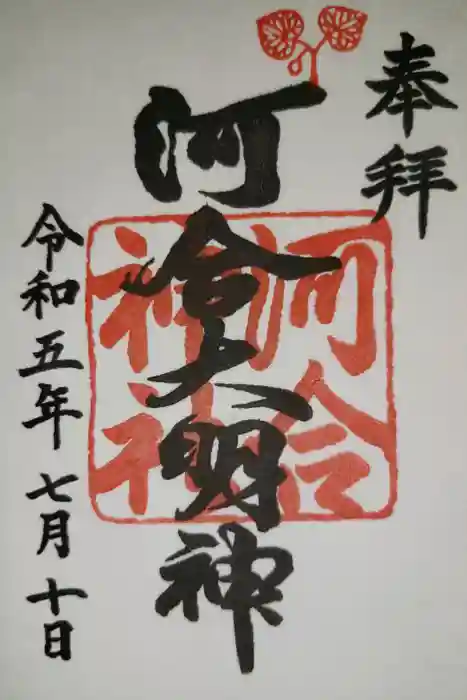 奉拝
河合大明神
河合
神社
令和五年七月十日